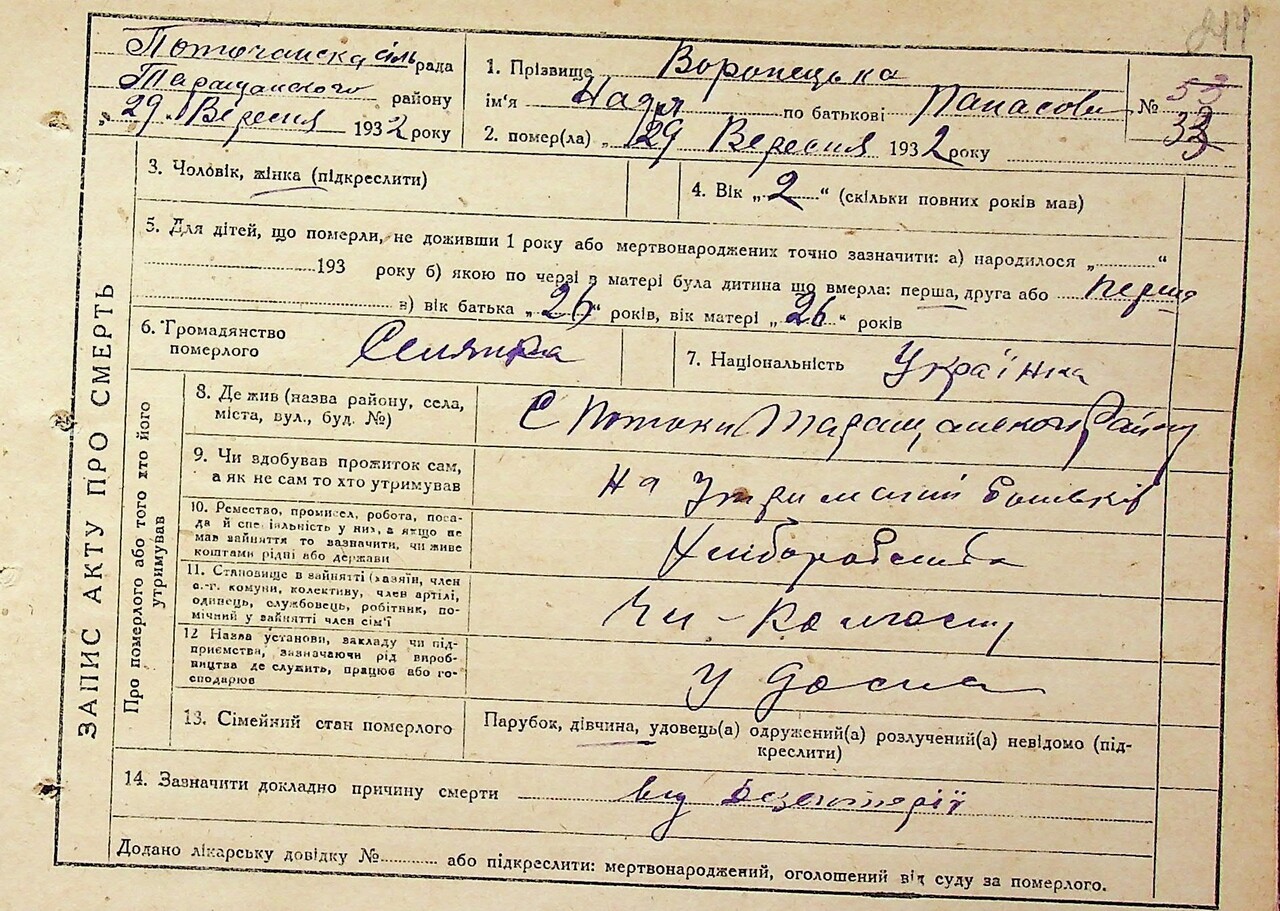 244
Поточанска сільрада
Таращанского району
„29„ Вересня 1932 року
1. Прізвище Воропецька
ім'я Надя по батькові Панасовн
№ 53
33
2. помер(ла) „29 Вересня 1932 року
ЗАПИС АКТУ ПРО СМЕРТЬ
3. Чоловік, жінка (підкреслити)
4. Вік „2“ (скільки повних років мав)
5. Для дітей, що померли, не доживши 1 року або мертвонароджених точно зазначити: а) народилося „..........“
193 року б) якою по черзі в матері була дитина що вмерла: перша, друга або перша
в) вік батька „26“ років, вік матері „26“ років
6. Громадянство
померлого
Селянка
7. Національність Українка
Про померлого або того хто його
утримував
8. Де жив (назва району, села,
міста, вул., буд. №)
С Потоки Таращанского Району
9. Чи здобував прожиток сам,
а як не сам то хто утримував
на утриманні батьків
10. Ремество, промисел, робота, поса-
да й спеціальність у них, а якщо не
мав зайняття то зазначити, чи живе
коштами рідні або держави
Хліборобства
11. Становище в зайнятті (хазяїн, член
с.-г. комуни, колективу, член артілі,
одинець, службовець, робітник, по-
мічний у зайнятті член сім'ї
Чл-Колгоспу
12 Назва установи, закладу чи під-
приємства, зазначаючи рід вироб-
ництва де служить, працює або го-
сподарює
У
13. Сімейний стан померлого
Парубок, дівчина, удовець(а) одружений(а) розлучений(а) невідомо (під-
креслити)
14. Зазначити докладно причину смерти від Дезентерії
Додано лікарську довідку №.......... або підкреслити: мертвонароджений, оголошений від суду за померлого.